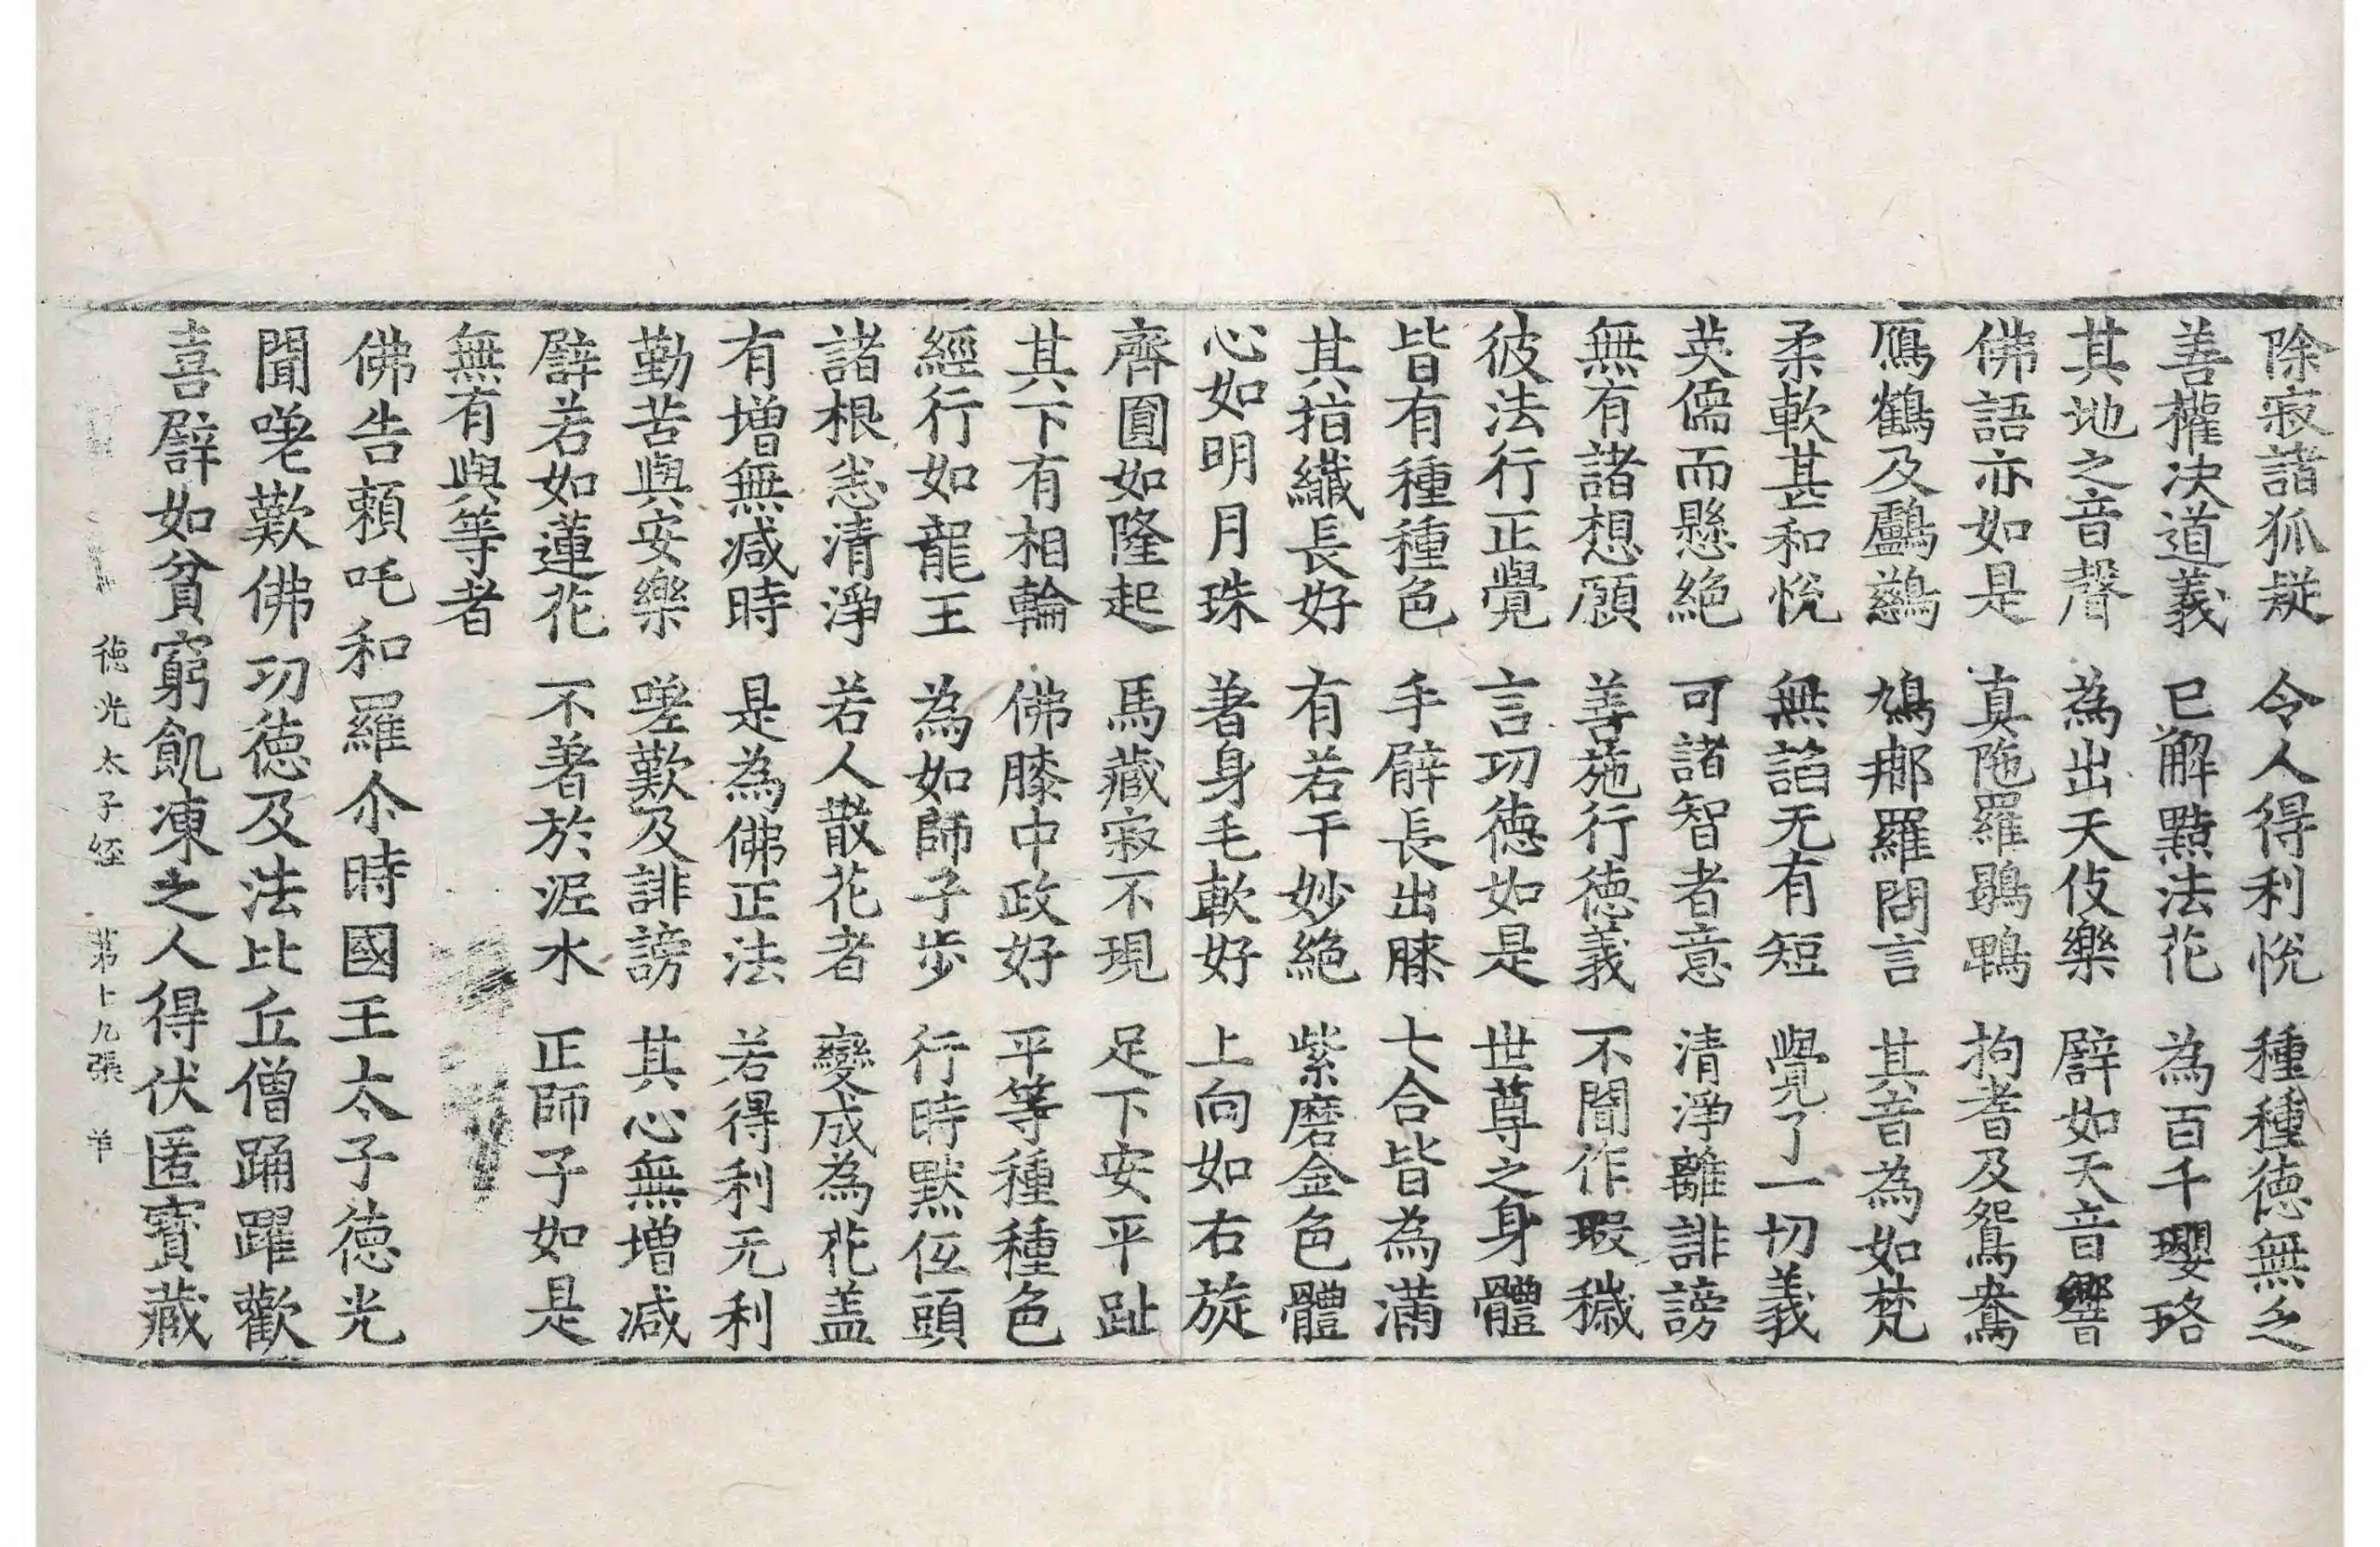 除寂諸狐疑　令人得利悅　種種德無乏
善權决道義　已解點法花　為百千瓔珞
其地之音聲　為出天伎樂　譬如天音響
佛語亦如是　真陁羅鵾鵯　拘耆及鴛鴦
鴈鶴及鸕鷀　鳩郍羅問言　其音為如梵
柔軟甚和悅　無謟无有短　覺了一切義
英儒而懸絕　可諸智者意　清淨離誹謗
無有諸想願　善施行德義　不聞作瑕穢
彼法行正覺　言功德如是　世尊之身體
皆有種種色　手臂長出膝　七合皆為滿
其指纎長好　有若干妙絕　紫磨金色體
心如明月珠　著身毛軟好　上向如右旋
齊圓如隆起　馬藏寂不現　足下安平趾
其下有相輪　佛膝中政好　平等種種色
經行如龍王　為如師子步　行時默伍頭
諸根悉清淨　若人散花者　變成為花盖
有增無減時　是為佛正法　若得利无利
勤苦與安樂　嗟歎及誹謗　其心無增減
譬若如蓮花　不著於泥水　正師子如是
無有與等者
佛告頼吒和羅尒時國王太子德光
聞嗟歎佛功德及法比丘僧踊躍歡
喜譬如貧窮飢凍之人得伏匿寶藏
德光太子經　第十九張　羊